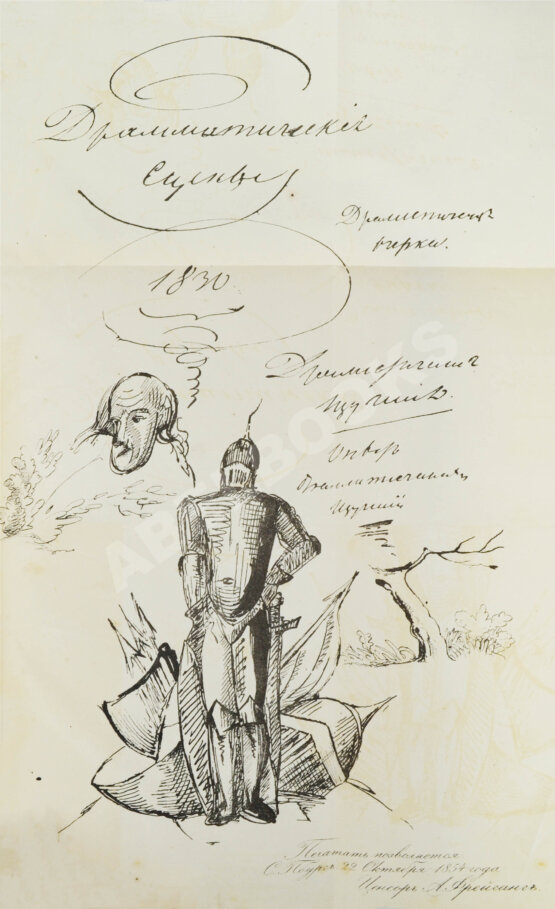 Драмматическiе
сцены
1830
Драматическiе
очерки.
Драмматическiя
изученiя.
Опытъ
драмматическихъ
изученiй
Печатать позволяется
С. Петрб. 22 Октября 1854 года
Ценсоръ А. Фрейгангъ.
ABABOOKS